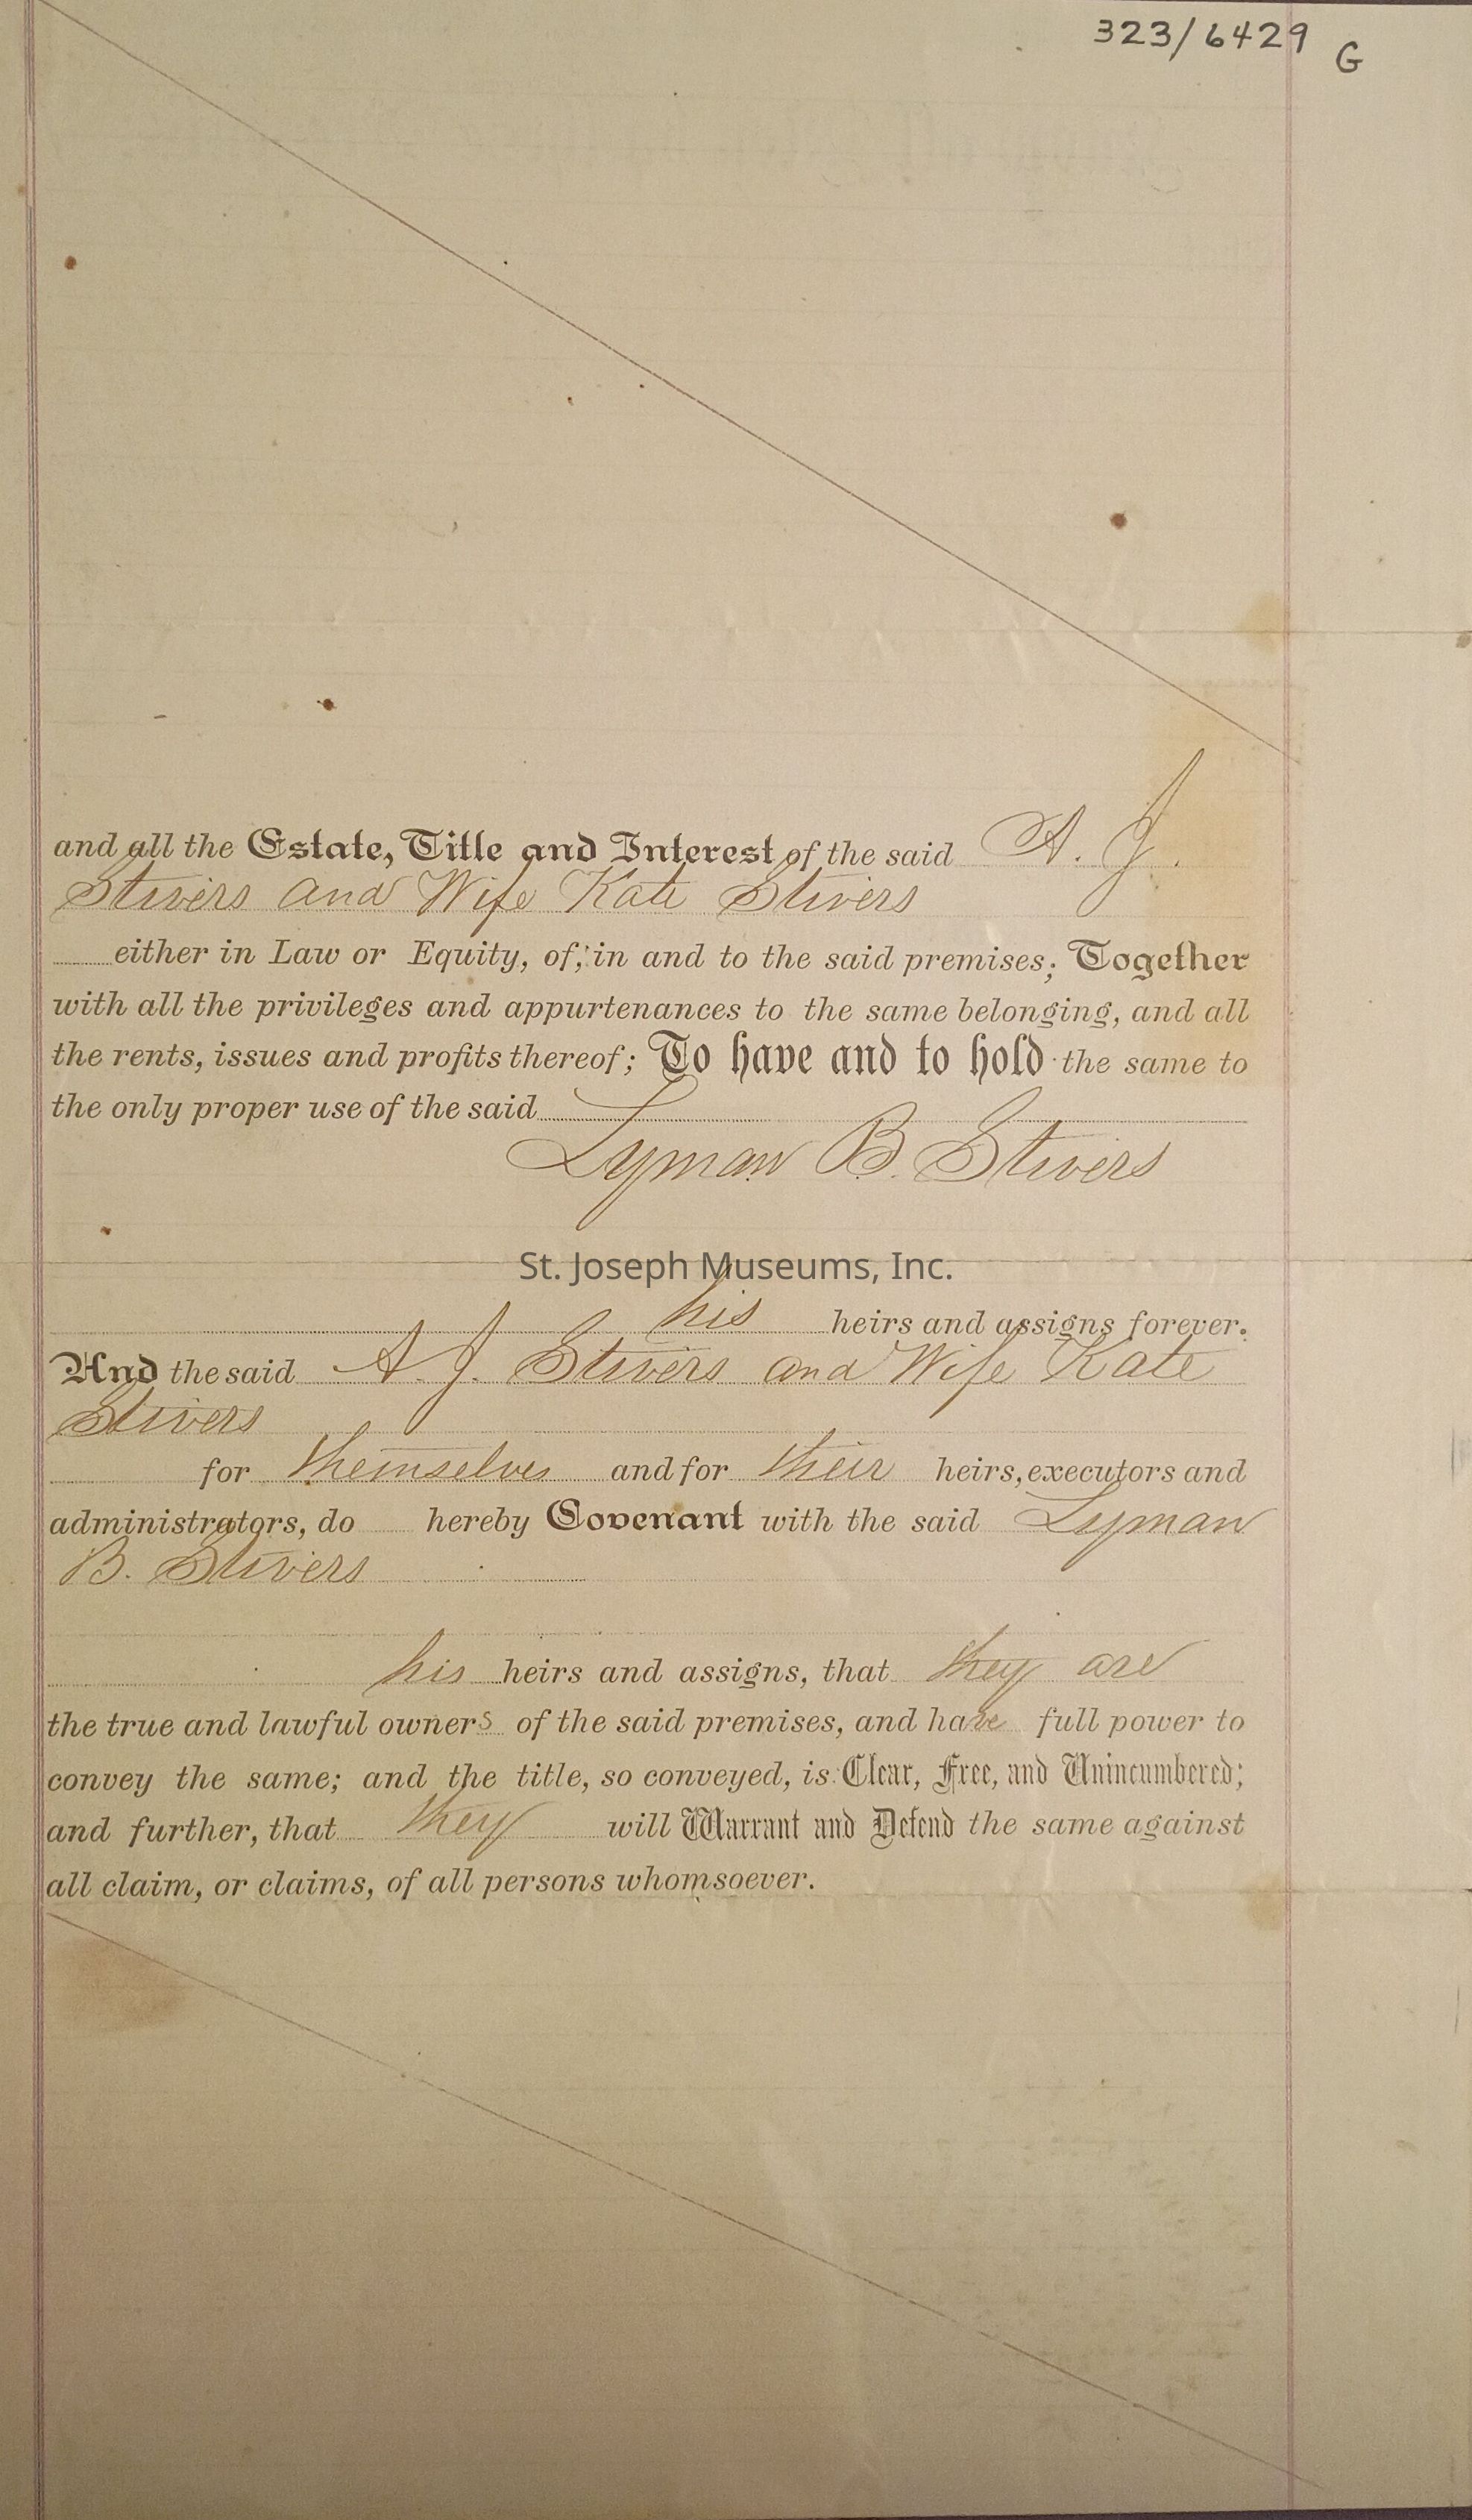 323/6429 G
and all the Estate, Title and Interest of the said A. J.
Stivers and Wife Kate Stivers
either in Law or Equity, of, in and to the said premises; Together
with all the privileges and appurtenances to the same belonging, and all
the rents, issues and profits thereof; To have and to hold the same to
the only proper use of the said
Lyman B. Stivers
St. Joseph Museums, Inc.
his heirs and assigns forever.
And the said A. J. Stivers and Wife Kate
Stivers
for themselves and for their heirs, executors and
administrators, do hereby Covenant with the said Lyman
B. Stivers
his heirs and assigns, that they are
the true and lawful owners of the said premises, and have full power to
convey the same; and the title, so conveyed, is Clear, Free, and Unincumbered;
and further, that they will Warrant and Defend the same against
all claim, or claims, of all persons whomsoever.